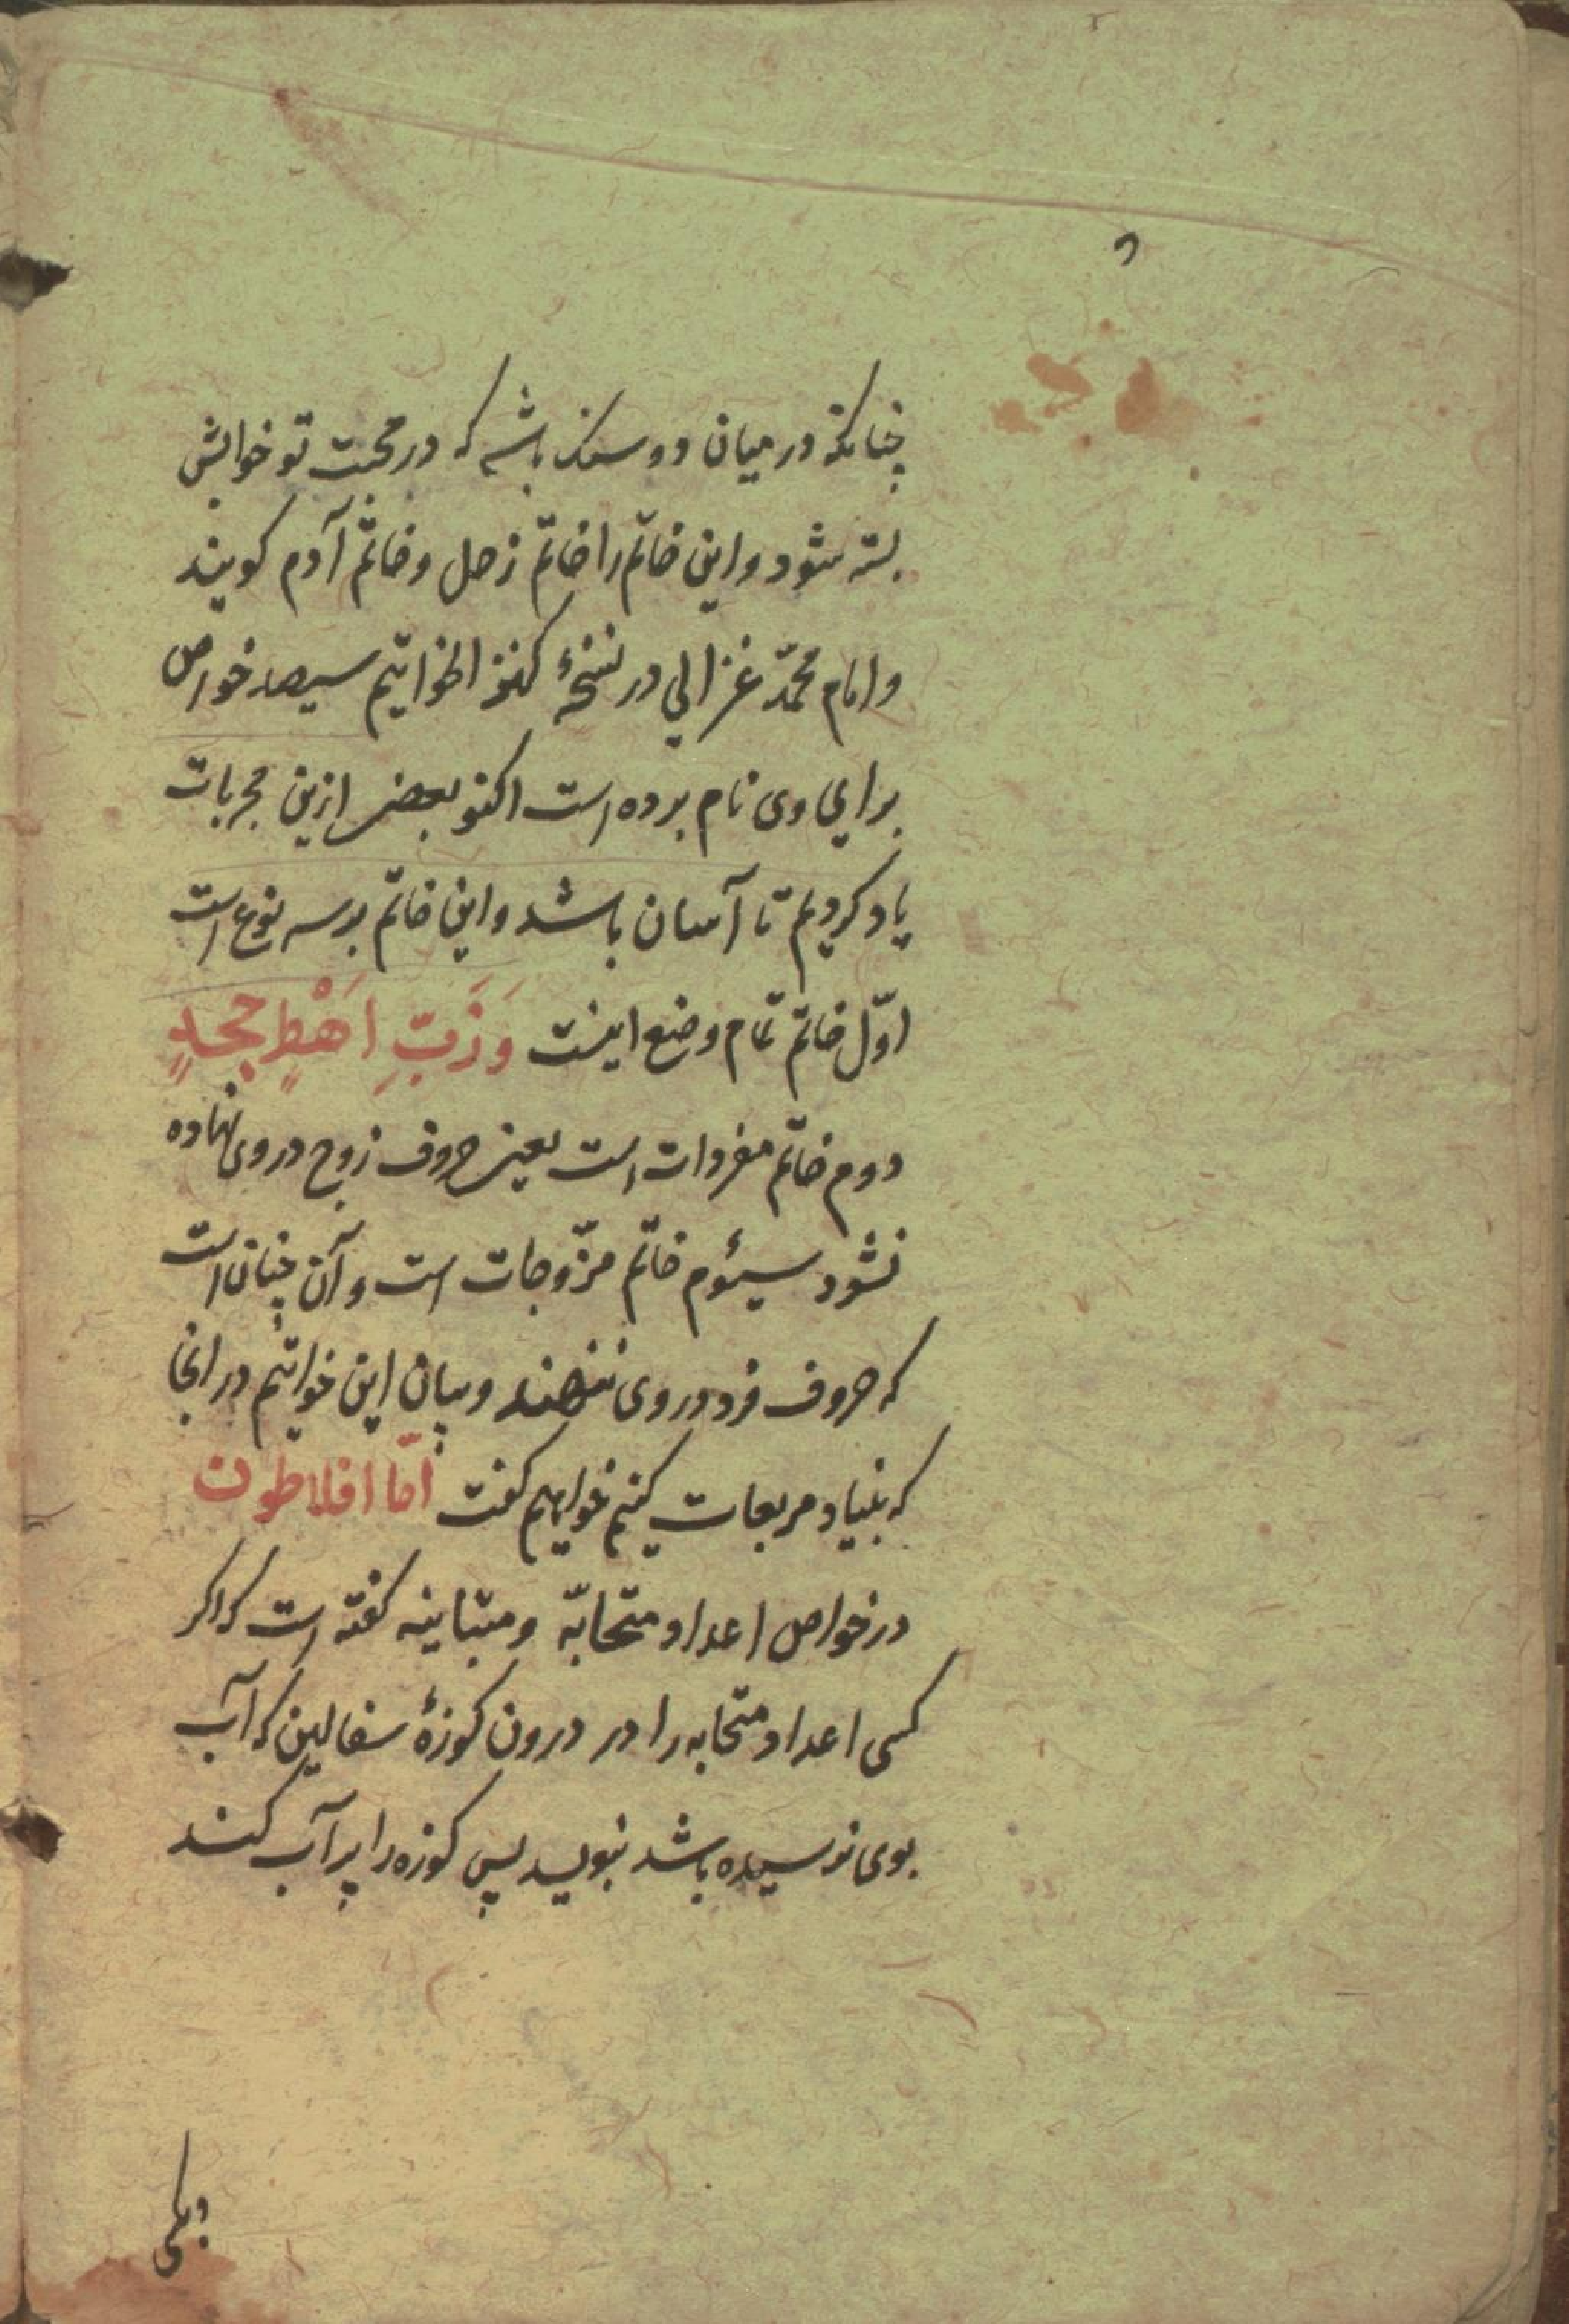 چنانکه در میان دو سنک باشد که در محبت تو خوابش
بسته شود و این خاتم را خاتم زحل و خاتم آدم کویند
و امام محمّد غزالی در نسخهٔ کنز الخواتیم سیصد خواص
برای وی نام برده است اکنو بعضی ازین مجربات
یاد کردیم تا آسان باشد و این خاتم بر سه نوع است
اوّل خاتم تمام وضع اینست وَزَبِّ اَهْطٍ جحدٍ
دوم خاتم مفردات است یعنی حروف زوج در وی نهاده
نشود سیئوم خاتم مزّوجات است و آن چنان است
که حروف فرد در وی ننهند و بیان این خواتیم در انجا
که بنیاد مربعات کنیم خواهیم کفت امّا افلاطون
در خواص اعداد متحابّه و متباینه کفته است که اکر
کسی اعداد متحابه را در درون کوزهٔ سفالین که آب
بوی نرسیده باشد نبویسد پس کوزه را پر آب کند